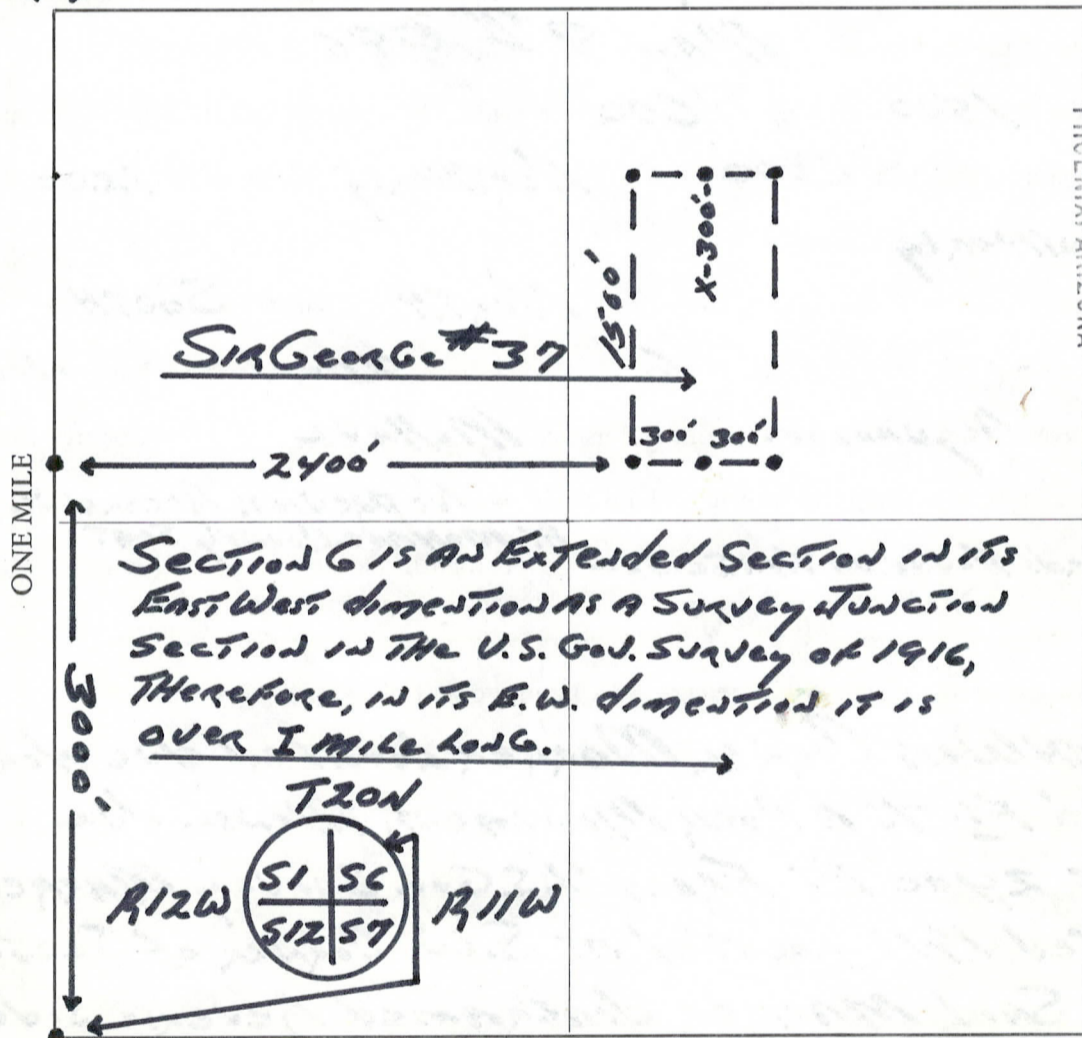 X-300'
1500'
Sir George #37
300' 300'
2400'
ONE MILE
Section 6 is an Extended Section in its
East West dimention as a Survey Junction
Section in the U.S. Gov. Survey of 1916,
Therefore, in its E.W. dimention it is
over 1 mile long.
3000'
T20N
S1 S6
R12W R11W
S12 S7